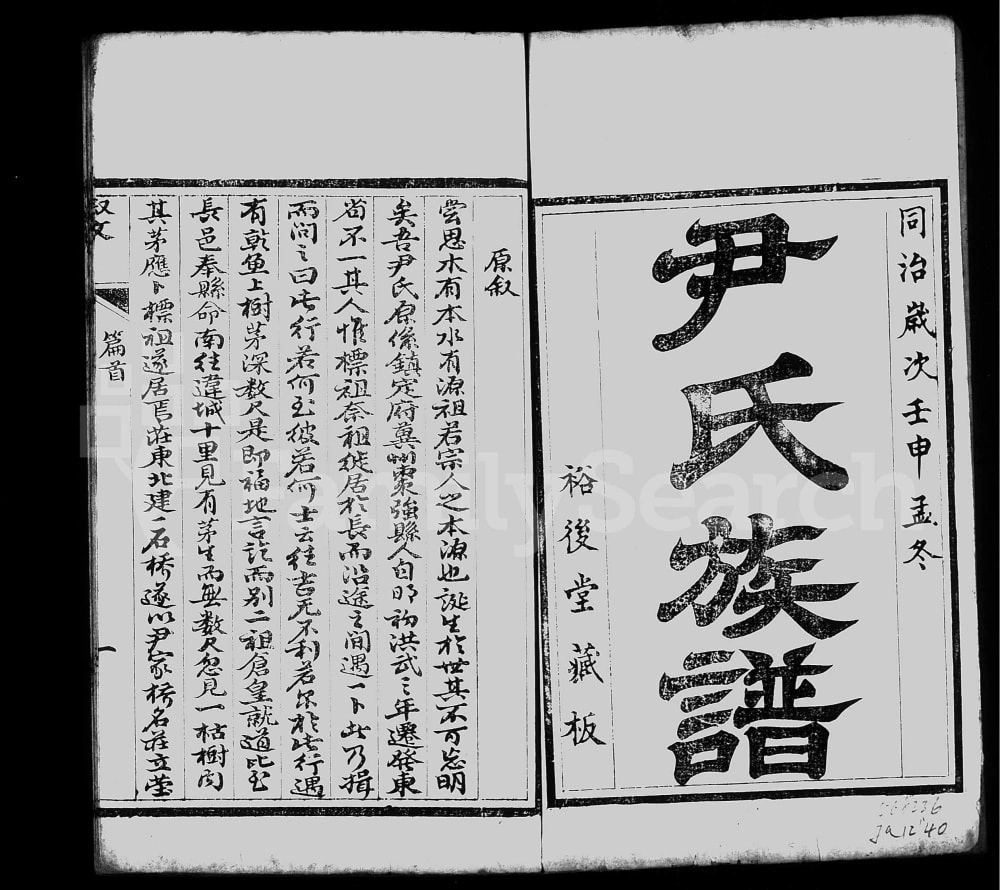 同治歲次壬申孟冬
尹氏族譜
裕後堂藏板
原叙
嘗思木有本水有源祖若宗人之本源也誕生於世其不可忘明
矣吾尹氏原係鎮定府冀州棗強縣人自明初洪武三年遷發東
省不一其人惟標祖奈祖徙居於長而沿途之間遇一卜此乃揖
而問之曰此行若何至彼若何士云往吉无不利若尔於此行遇
有乾魚上樹茅深数尺是即福地言訖而别二祖倉皇就道比至
長邑奉縣命南往違城十里見有茅生而無数尺忽見一枯樹肉
其茅應卜標祖遂居焉莊東北建一石桥遂以尹家桥名莊立塋
叙文
篇首
一
FamilySearch
Ja 12 40